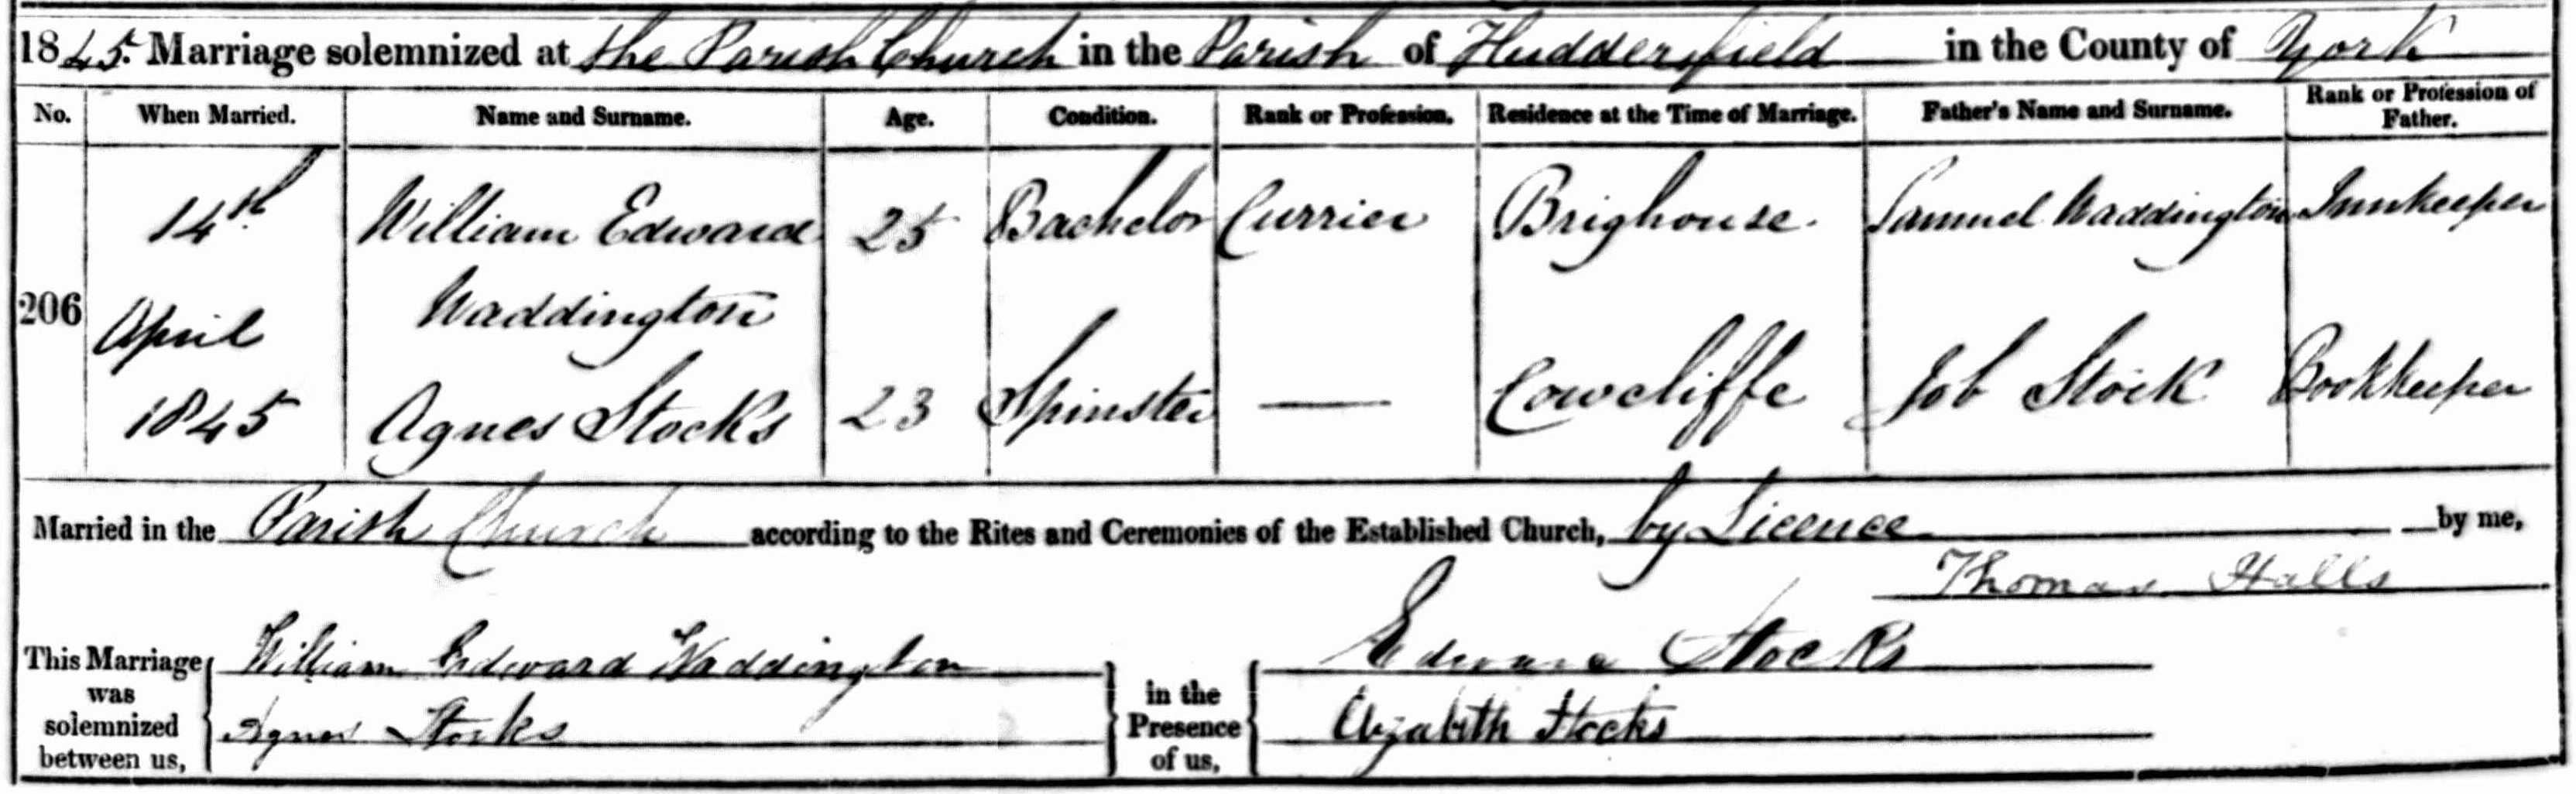 1845. Marriage solemnized at the Parish Church in the Parish of Huddersfield in the County of York
No. When Married. Name and Surname. Age. Condition. Rank or Profession. Residence at the Time of Marriage. Father's Name and Surname. Rank or Profession of Father.
14th William Edward 25 Bachelor Currier Brighouse. Samuel Waddington Innkeeper
206 April Waddington
1845 Agnes Stocks 23 Spinster — Cowcliffe Job Stock Bookkeeper
Married in the Parish Church according to the Rites and Ceremonies of the Established Church, by Licence by me,
Thomas Halls
This Marriage was solemnized between us, William Edward Waddington in the Presence of us, Edward Stocks
Agnes Stocks Elizabeth Stocks